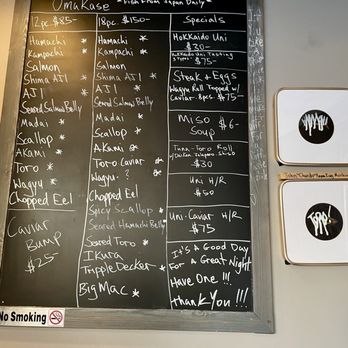 Omakase *Fish From Japan Daily*
12pc. $85-
Hamachi *
Kampachi *
Salmon
Shima AJI *
AJI *
Seared Salmon Belly
Madai *
Scallop *
Akami *
Toro *
Wagyu *
Chopped Eel
Caviar
Bump
$25-
18pc. $150-
Hamachi *
Kampachi *
Salmon
Shima AJI *
AJI *
Seared Salmon Belly
Madai *
Scallop *
Akami *
Toro Caviar *
Wagyu *
Chopped Eel
Spicy Scallop *
Seared Hamachi Belly
Seared Toro *
Ikura
Tripple Decker *
Big Mac *
Specials
Hokkaido Uni
$30-
Hokkaido Uni Tasting
$75-
Steak + Eggs
Wagyu Roll Topped w/
Caviar 8pcs. $75-
Miso
Soup $6-
Tuna-Toro Roll
$30
Uni H/R
$50
Uni-Caviar H/R
$75
It's a Good Day
For a Great Night
Have One !!!
Thank You !!!
No Smoking